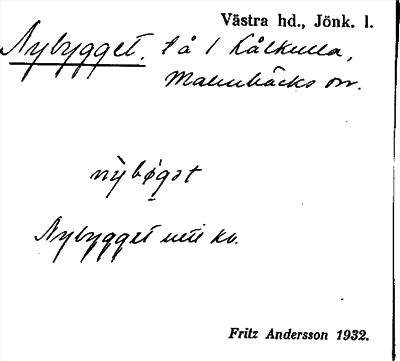 Västra hd., Jönk. l.
Nybygget, tå 1 Kålkulla,
Malmbäcks sn.
nỳbø̀gət
Nybygget uti kv.
Fritz Andersson 1932.